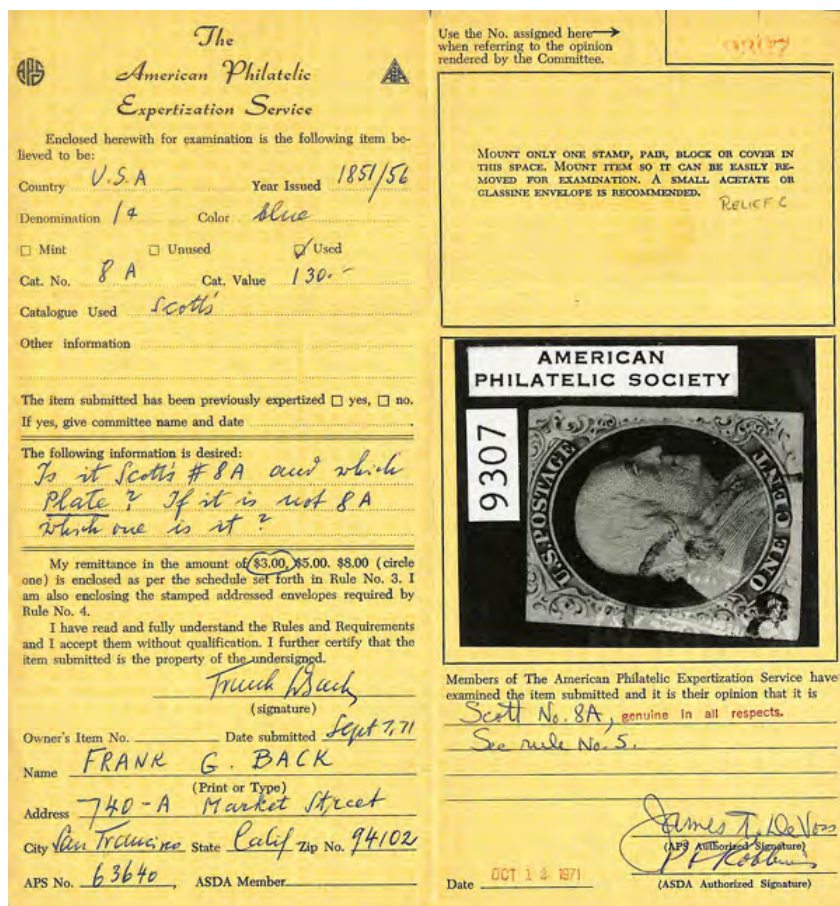 The
American Philatelic
Expertization Service
APS
Enclosed herewith for examination is the following item be-
lieved to be:
Country U.S.A Year Issued 1851/56
Denomination 1¢ Color blue
Mint Unused Used
Cat. No. 8 A Cat. Value 130.-
Catalogue Used Scott's
Other information
The item submitted has been previously expertized yes, no.
If yes, give committee name and date
The following information is desired:
Is it Scott's # 8A and which
Plate? If it is not 8A
which one is it?
My remittance in the amount of $3.00, $5.00. $8.00 (circle
one) is enclosed as per the schedule set forth in Rule No. 3. I
am also enclosing the stamped addressed envelopes required by
Rule No. 4.
I have read and fully understand the Rules and Requirements
and I accept them without qualification. I further certify that the
item submitted is the property of the undersigned.
Frank Back
(signature)
Owner's Item No. Date submitted Sept 7, 71
Name FRANK G. BACK
(Print or Type)
Address 740-A Market Street
City San Francisco State Calif Zip No. 94102
APS No. 63640, ASDA Member
Use the No. assigned here
when referring to the opinion
rendered by the Committee.
MOUNT ONLY ONE STAMP, PAIR, BLOCK OR COVER IN
THIS SPACE. MOUNT ITEM SO IT CAN BE EASILY RE-
MOVED FOR EXAMINATION. A SMALL ACETATE OR
GLASSINE ENVELOPE IS RECOMMENDED.
RELIEF C
AMERICAN
PHILATELIC SOCIETY
9307
U.S. POSTAGE
ONE CENT.
Members of The American Philatelic Expertization Service have
examined the item submitted and it is their opinion that it is
Scott No. 8A, genuine in all respects.
See rule No. 5.
James T. DeVoss
(APS Authorized Signature)
(ASDA Authorized Signature)
Date OCT 12 1971